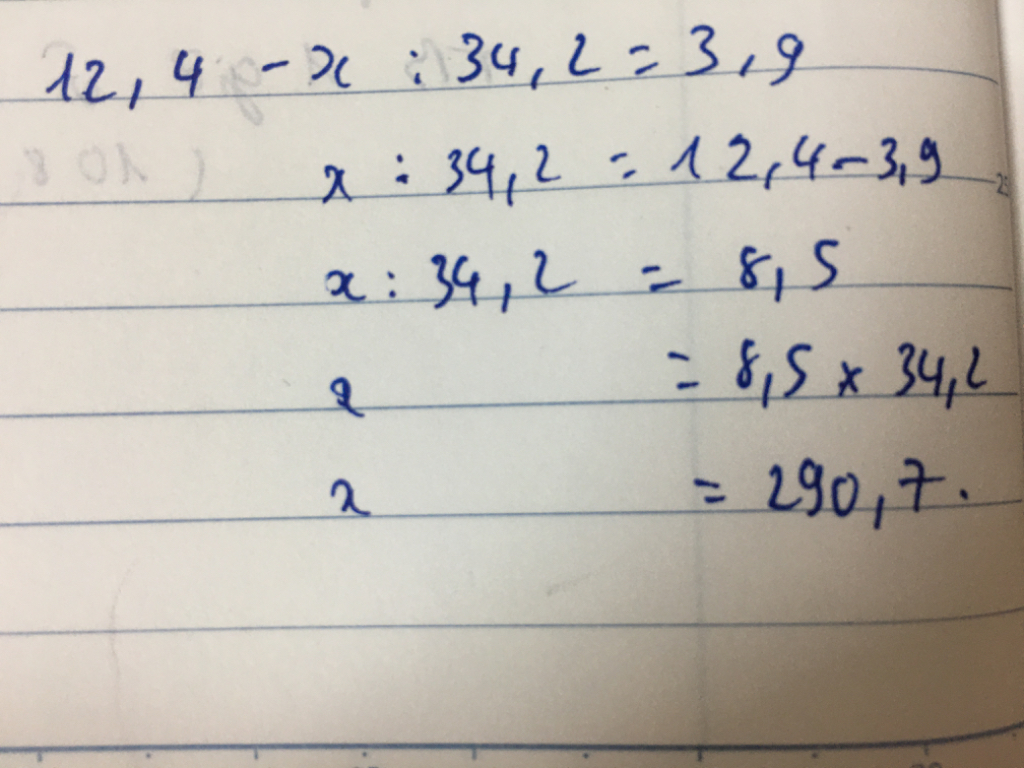 12,4 - x : 34,2 = 3,9
x : 34,2 = 12,4 - 3,9
x : 34,2 = 8,5
x = 8,5 x 34,2
x = 290,7.